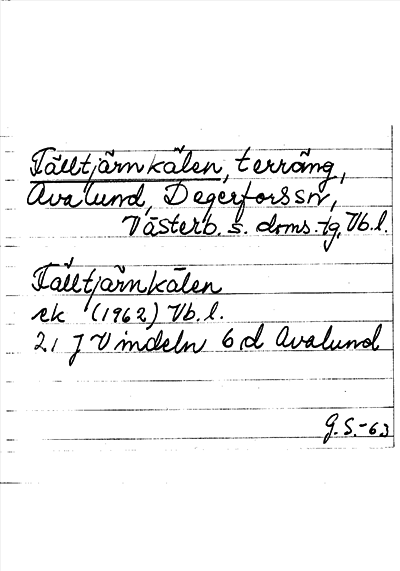 Tälltjärnkälen, terräng,
Avalund, Degerfors sn,
Västerb. s. doms. tg, Vb. l.
Tälltjärnkälen
ek (1962) Vb. l.
21 J Vindeln 6 d Avalund
G. S. -63